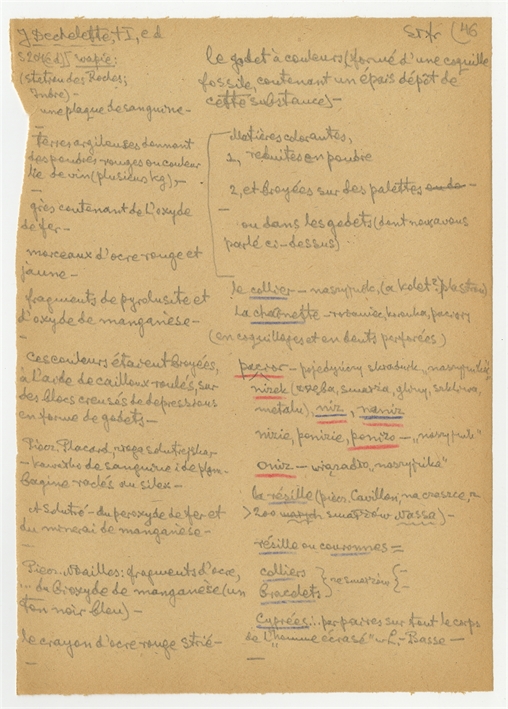 J Dechelette, t I, e d
(46
(Station des Roches;
Indre) -
une plaque de sanguine -
terres argileuses donnant
des poudres rouges ou couleur
lie de vin (plusieurs kg), -
grès contenant de l'oxyde
de fer -
morceaux d'ocre rouge et
jaune -
fragments de pyrolusite et
d'oxyde de manganèse -
Ces couleurs étaient broyées,
à l'aide de cailloux roulés, sur
des blocs creusés de depressions
en forme de godets -
Placard,
de sanguine i de plom-
bagine raclés au silex -
du peroxyde de fer et
du minerai de manganèse -
fragments d'ocre,
... du bioxyde de manganèse (un
ton noir bleu) -
le crayon d'ocre rouge strié -
le godet à couleurs (formé d'une coquille
fossile, contenant un épais dépôt de
cette substance) -
Matières colorantes,
1, réduites en poudre
2, et broyées sur des palettes
ou dans les godets (dont nous avons
parlé ci-dessus)
le collier - naszyjnik, (a kolet? plastron)
La chaînette -
(en coquillages et en dents perforées)
pacior - pojedyńczy
nizek
metalu) niz, naniz
nizie, ponizie, ponizo - „naszyjnik"
oniz -
la résille (
> 200
résille ou couronnes -
colliers
bracelets
Cyprées... par paires sur tout le corps
de l'„homme écrasé" L.-Basse -